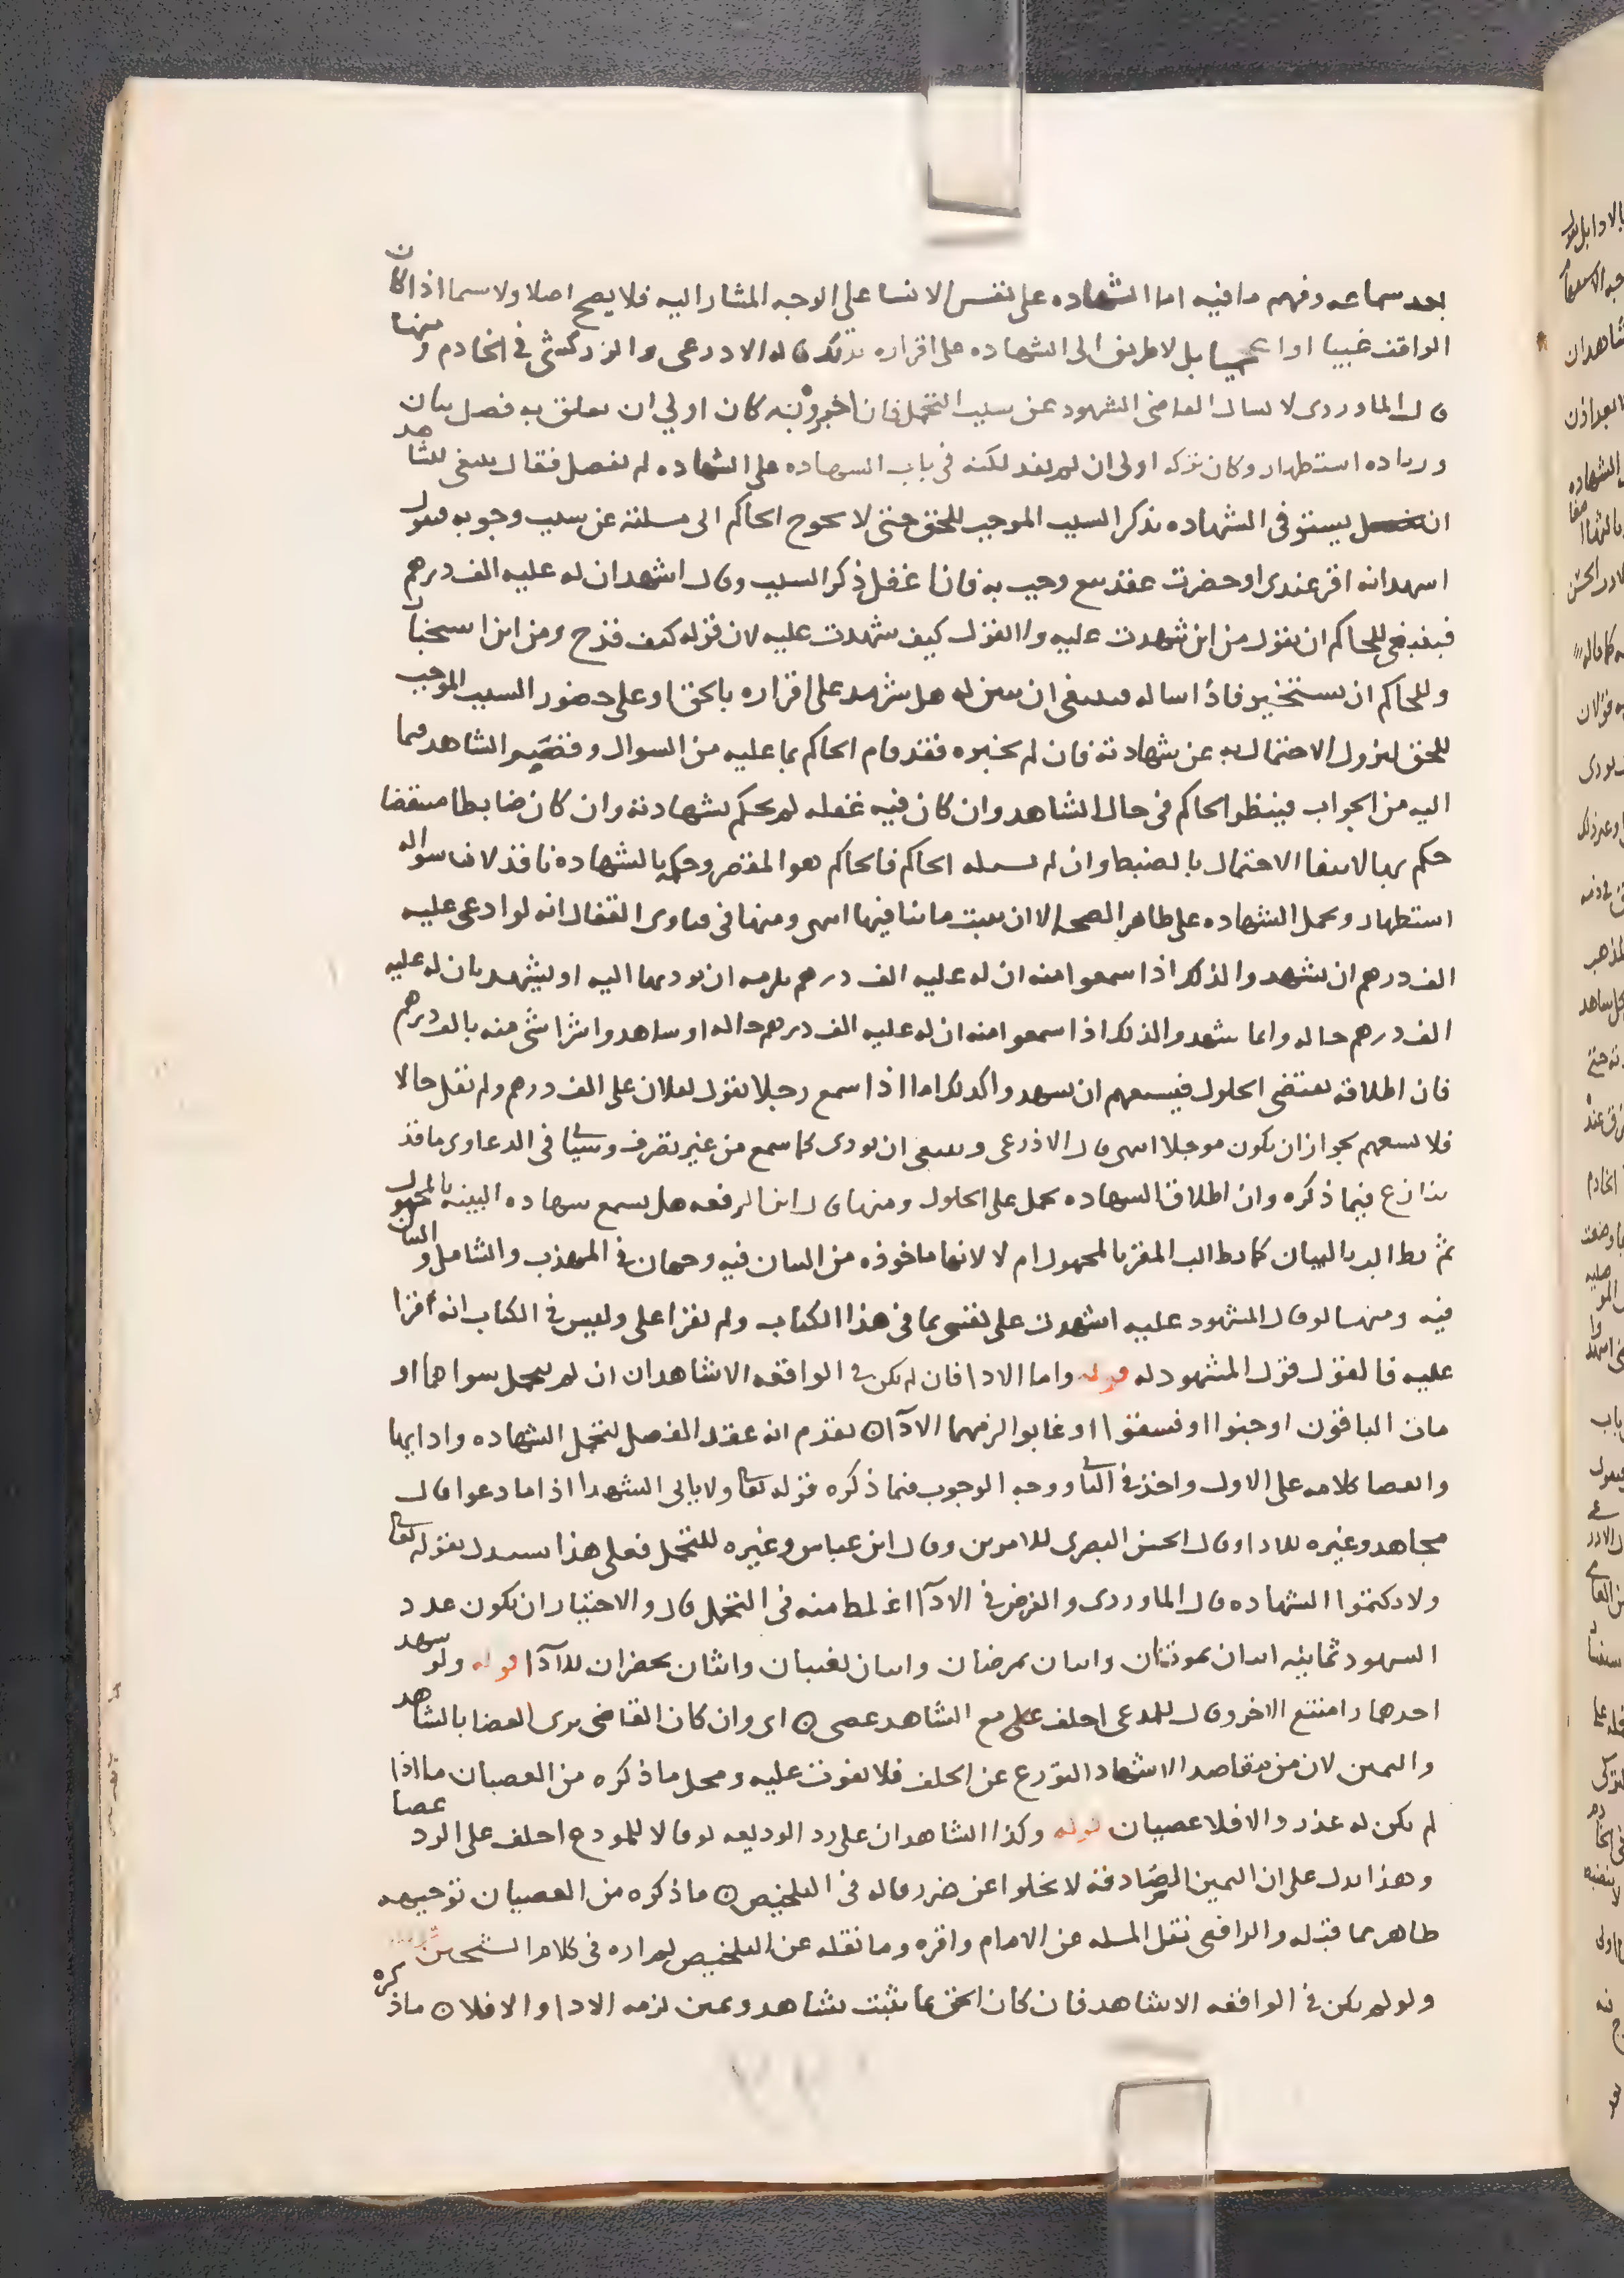 بعد سماعه وفهم ما فيه اما الشهاده على نفس الانسا على الوجه المشار اليه فلا يصح اصلا ولا سيما اذا كان
الواقف غبيا او اعجميا بل لا طريق الى الشهاده على اقراره بذلك قاله الاذرعى والزركشى فى الخادم ومنها
قال الماوردى لا يسال القاضى الشهود عن سبب التحمل فان اخبروه به كان اولى ان تعلق به فضل بيان
وزياده استظهار وكان تركه اولى ان لم يفد لكنه فى باب الشهاده على الشهاده لم يفصل فقال ينبغى للشاهد
ان يستوفى الشهاده بذكر السبب الموجب للحق حتى لا يحوج الحاكم الى مسلته عن سبب وجوبه فيقول
اشهد انه اقر عندى او حضرت عقد بيع وجب به فاذا غفل ذكر السبب وقال اشهد ان له عليه الف درهم
فينبغى للحاكم ان يقول من اين شهدت عليه ولا يقول كيف شهدت عليه لان قوله كيف قدح ومن اين استخبار
وللحاكم ان يستخبر فاذا ساله فينبغى ان يبين له هل شهد على اقراره بالحق او على حضور السبب الموجب
للحق ليزول الاحتمال به عن شهادته فان لم يخبره فقد قام الحاكم بما عليه من السوال وقصر الشاهد فيما
اليه من الجواب فينظر الحاكم فى حال الشاهد وان كان فيه غفله لم يحكم بشهادته وان كان ضابطا متيقضا
حكم بها لانتفا الاحتمال بالضبط وان لم يسله الحاكم فالحاكم هو المقصر وحكمه بالشهاده نافذ لان سواله
استظهار وتحمل الشهاده على ظاهر الصحه الا ان يثبت ما ينافيها انتهى ومنها فى فتاوى القفال انه لو ادعى عليه
الف درهم ان شهدوا لذلك اذا سمعوا منه ان له عليه الف درهم يلزمه ان يوديها اليه او ليشهد بان له عليه
الف درهم حاله وانما شهدوا لذلك اذا سمعوا منه ان له عليه الف درهم حاله او شاهدوا شرا شى منه بالف درهم
فان اطلاقه يقتضى الحلول فيسعهم ان يشهدوا كذلك اما اذا سمع رجلا يقول لفلان على الف درهم ولم يقل حالا
فلا يسعهم لجواز ان يكون موجلا انتهى قال الاذرعى وينبغى ان يودى كما سمع من غير تصرف وسياتى فى الدعاوى ما قد
ينازع فيما ذكره وان اطلاق الشهاده يحمل على الحلول ومنها قال ابن الرفعه هل يسمع شهاده البينه بالمجهول
ثم يطالب بالبيان كما يطالب المقر بالمجهول ام لا لانها ماخوذه من البيان فيه وجهان فى المهذب والشامل والبيان
فيه ومنها لو قال المشهود عليه اشهدت على نفسى بما فى هذا الكتاب ولم يقرا على وليس فى الكتاب انه اقرا
عليه فالقول قول المشهود له قوله واما الادا فان لم يكن فى الواقعه الا شاهدان ان لم يتحمل سواهما او
مات الباقون او جنوا او فسقوا او غابوا لزمهما الادآ ۞ تقدم انه عقد الفصل لتحمل الشهاده وادايها
وانقضا كلامه على الاول واخذ فى الثانى ووجه الوجوب فيما ذكره قوله تعالى ولا يابى الشهدا اذا ما دعوا قال
مجاهد وغيره للادا وقال الحسن البصرى للامرين وقال ابن عباس وغيره للتحمل فعلى هذا يستدل بقوله تعالى
ولا تكتموا الشهاده قال الماوردى والفرض فى الادآ اغلظ منه فى التحمل قال والاختيار ان يكون عدد
الشهود ثمانيه اثنان يموتان واثنان يمرضان واثنان يغيبان واثنان يحضران للادآ قوله ولو شهد
احدهما وامتنع الاخر وقال للمدعى احلف مع الشاهد عصى ۞ اى وان كان القاضى يرى القضا بالشاهد
واليمين لان من مقاصد الاشهاد التورع عن الحلف فلا يفوت عليه ومحل ما ذكره من العصيان ما اذا
لم يكن له عذر والا فلا عصيان قوله وكذا الشاهدان على رد الوديعه لو قالا للمودع احلف على الرد عصيا
وهذا يدل على ان اليمين الصادقه لا يخلوا عن ضرر قاله فى التلخيص ۞ ما ذكره من العصيان توجيهه
ظاهر مما قبله والرافعى نقل المسله عن الامام واقره وما نقله عن التلخيص لم اره فى كلام الشيخين
ولو لم يكن فى الواقعه الا شاهد فان كان الحق مما يثبت بشاهد ويمين لزمه الادا والا فلا ۞ ما ذكره